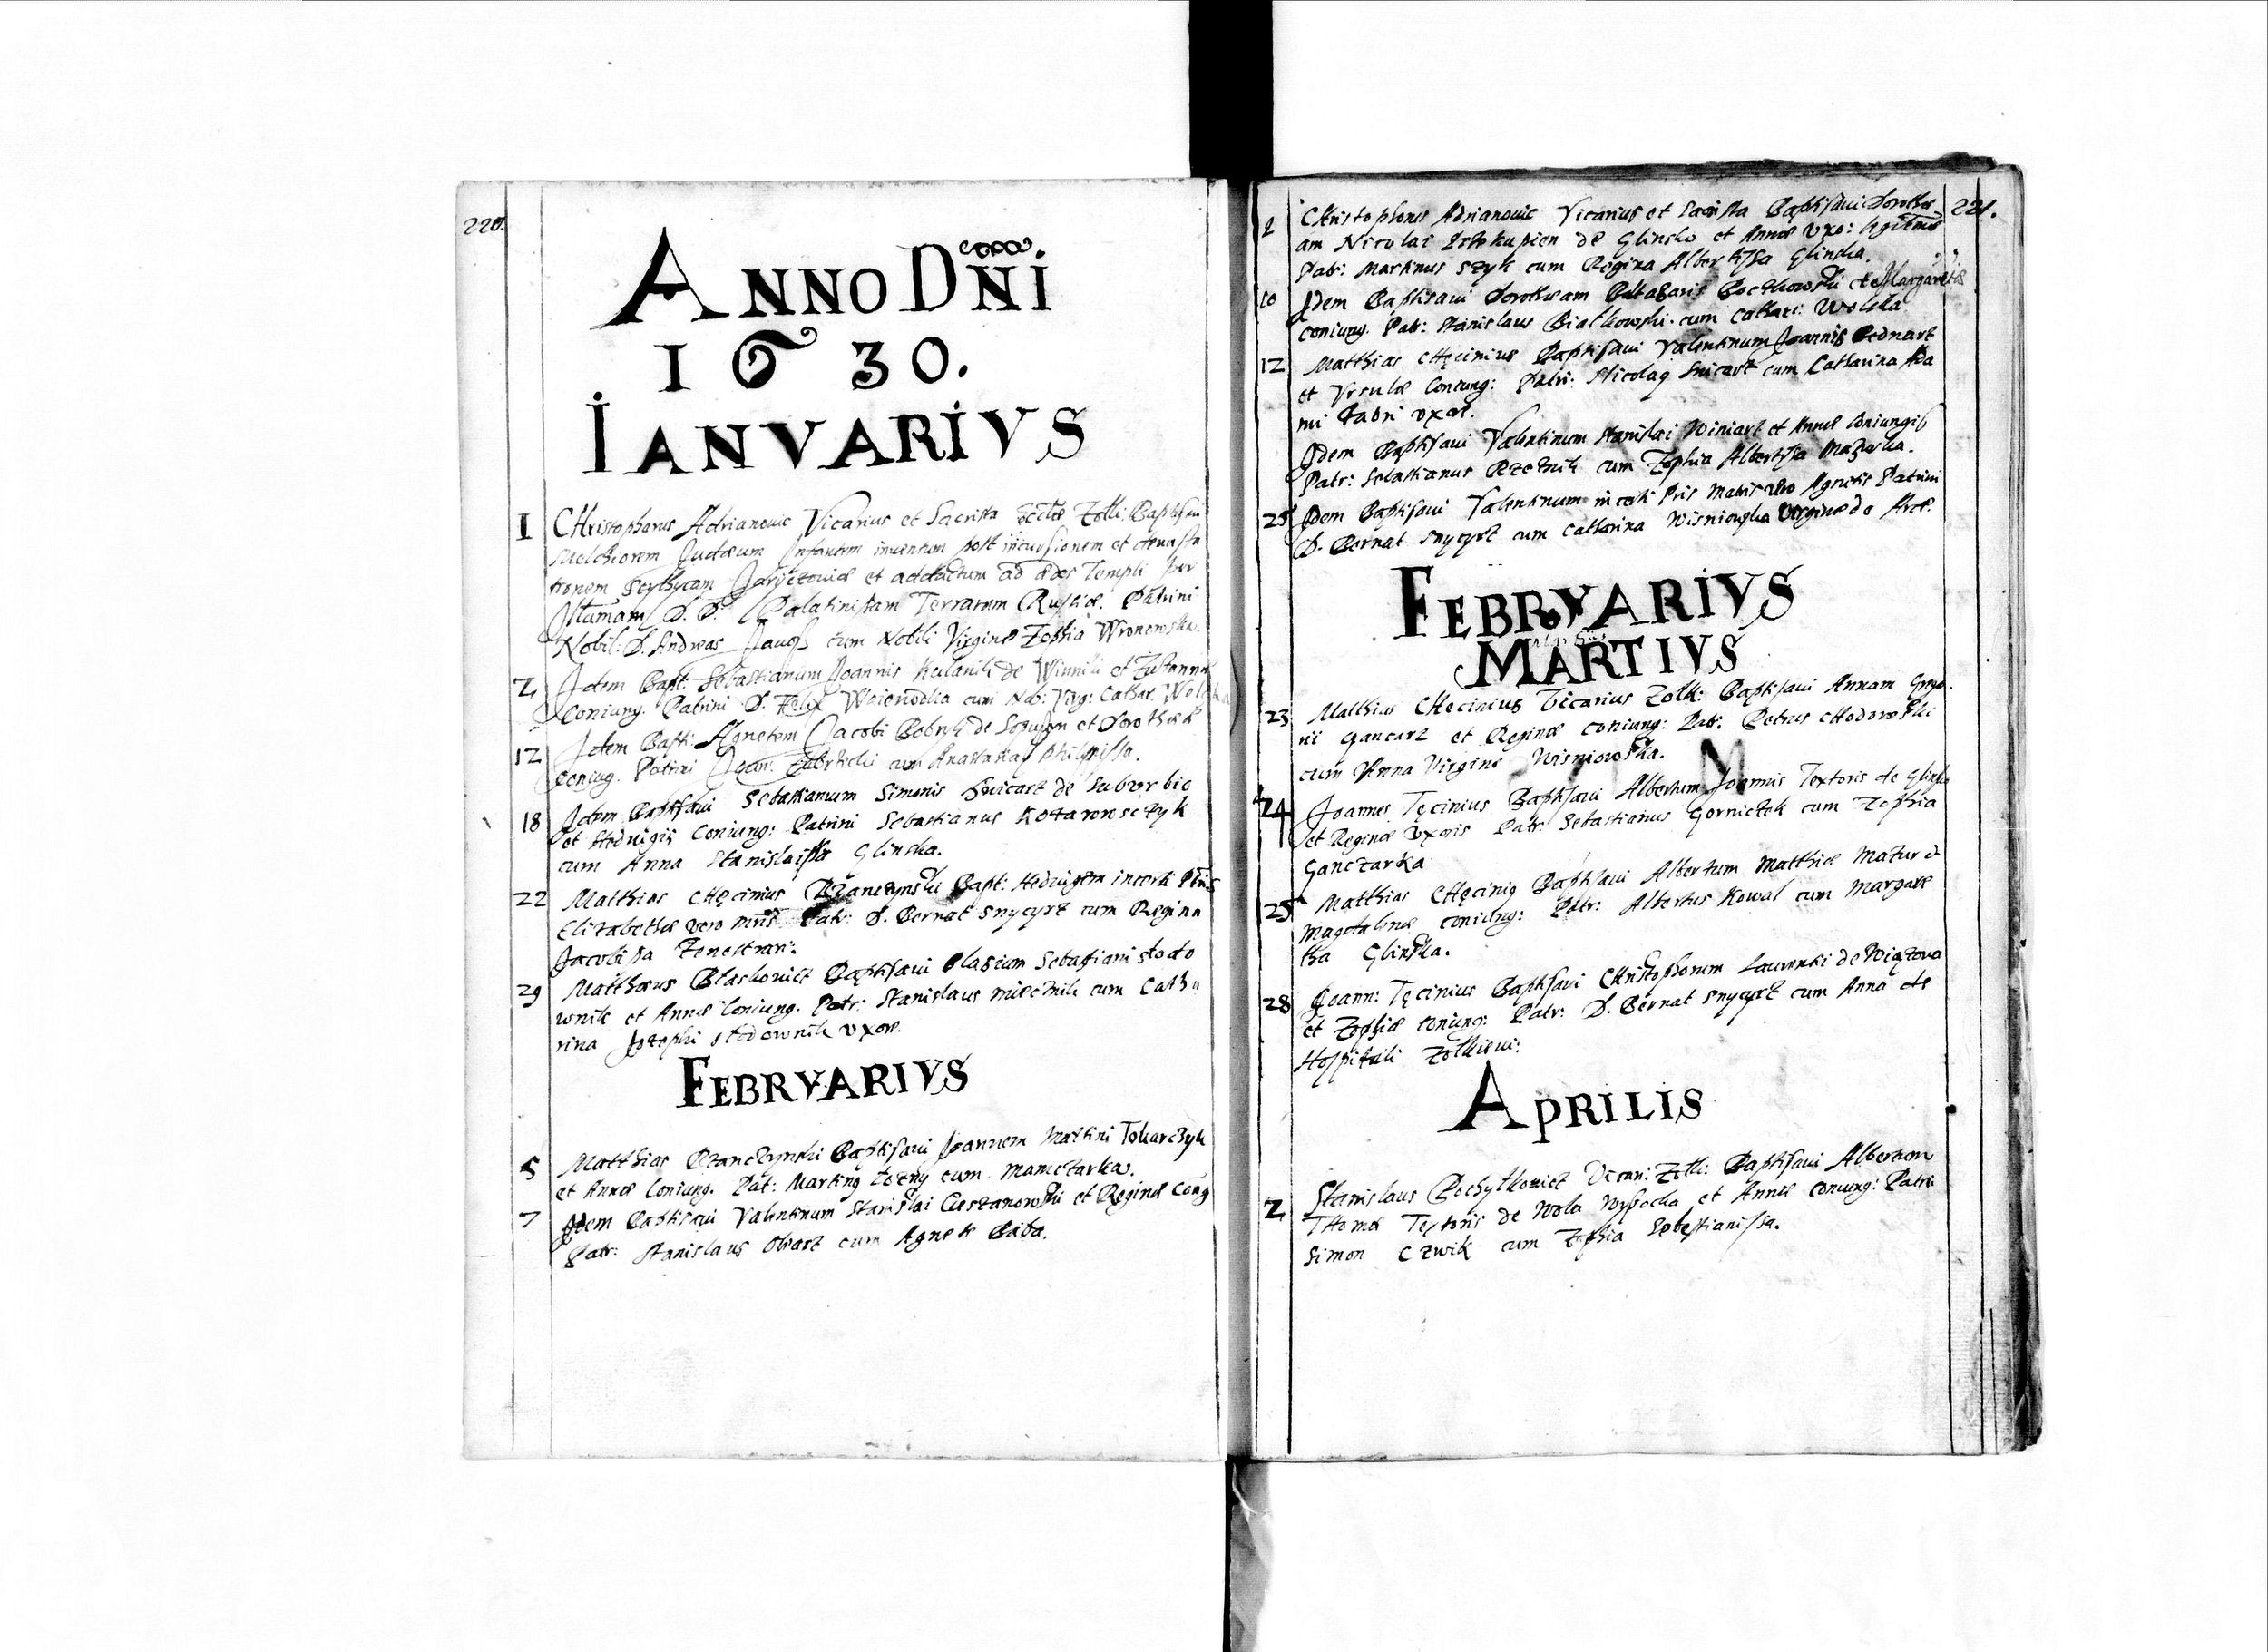 220.
ANNO DNI
1630.
IANVARIVS
1 CHristophorus Adrianouic Vicarius et Sacrista Zolk: Baptisaui
Melchiorem Judæum Infantem inuentum post incursionem et deuasta
tionem Scythycam et adductum ad ædes Templi per
D. D. Palatinissam Terrarum Russiæ. Patrini
Nobil: D. Andreas cum Nobili Virgine Zophia Wronowska.
2 Idem Bapt: Sebastianum Joannis Kulanik de Winniki et Zusannæ
Coniung. Patrini D. Felix cum Nob: Virg: Cathar Wolska
12 Idem Bapt: Agnetem Jacobi Bobryk de et Dorotheæ
Coniug. Patrini Joan: cum Anastasia
18 Idem Baptisaui Sebastianum Simonis Snicarz de Suburbio
et Heduigis Coniung: Patrini Sebastianus
cum Anna Stanislaissa Glinska.
22 Matthias CHęcinius Bapt: Heduigem incerti Ptris
Elizabethæ vero Mris Patr: D. Bernat Snycyrz cum Regina
Jacobissa
29 Matthæus Blaskouicz Baptisaui Blasium Sebastiani stodo
wnik et Annæ Coniung. Patr: Stanislaus Miecznik cum Catha
rina Jozephi stodownik vxore.
FEBRVARIVS
5 Matthias Rzanczynski Baptisaui Joannem Martini Tokarczyk
et Annæ Coniung. Pat: Marting cum Mamczarka.
7 Idem Baptisaui Valentinum Stanislai Cieszanowski et Reginæ Cong
Patr: Stanislaus cum Agnete Baba.
221.
2 CHristophorus Adrianouic Vicarius et Sacrista Baptisaui Dorothe
am Nicolai de Glinsko et Annæ vxo: legitimæ
Patr: Martinus Szyk cum Regina Albertissa Glinska.
10 Idem Baptisaui Dorotheam Baltasaris Boczkowski et Margaretæ
Coniung. Patr: Stanislaus Bialkowski cum Cathar: Wolska
12 Matthias CHęcinius Baptisaui Valentinum Joannis Bednarz
et Vrsulæ Coniung: Patri: Nicolag Snicarz cum Catharina Ada
mi Fabri vxor.
Idem Baptisaui Valentinum Stanislai Winiarz et Annæ Coniungis
Patr: Sebastianus Rzeznik cum Zophia Albertissa
25 Idem Baptisaui Valentinum incerti Pris Matris vero Agnetis Patrini
D. Bernat Snycyrz cum Catharina Wisniowska Virgine de Arce.
FEBRVARIVS
MARTIVS
23 Matthias CHecinius Vicarius Zolk: Baptisaui Annam Grego
rii Gancarz et Reginæ Coniung: Patr: Petrus CHodorowski
cum Anna Virgine Wisniowska.
24 Joannes Tęcinius Baptisaui Albertum Joannis Textoris de Glinsko
et Reginæ Vxoris Patr: Sebastianus Gorniczek cum Zophia
Ganczarka
25 Matthias CHęcinig Baptisaui Albertum Matthiæ Mazur et
Magdalenæ Coniung: Patr: Albertus Kowal cum Margare
tha Glinska.
28 Joann: Tęcinius Baptisaui CHristophorum Laurentii de Wiązowa
et Zophiæ Coniung: Patr: D. Bernat Snycyrz cum Anna de
Hospitali Zolkieui:
APRILIS
2 Stanislaus Pochylkowicz Zolk: Baptisaui Albertum
THomæ Textoris de Wola Wysocka et Annæ Coniung: Patri
Simon Czwik cum Zophia Sebestianissa.